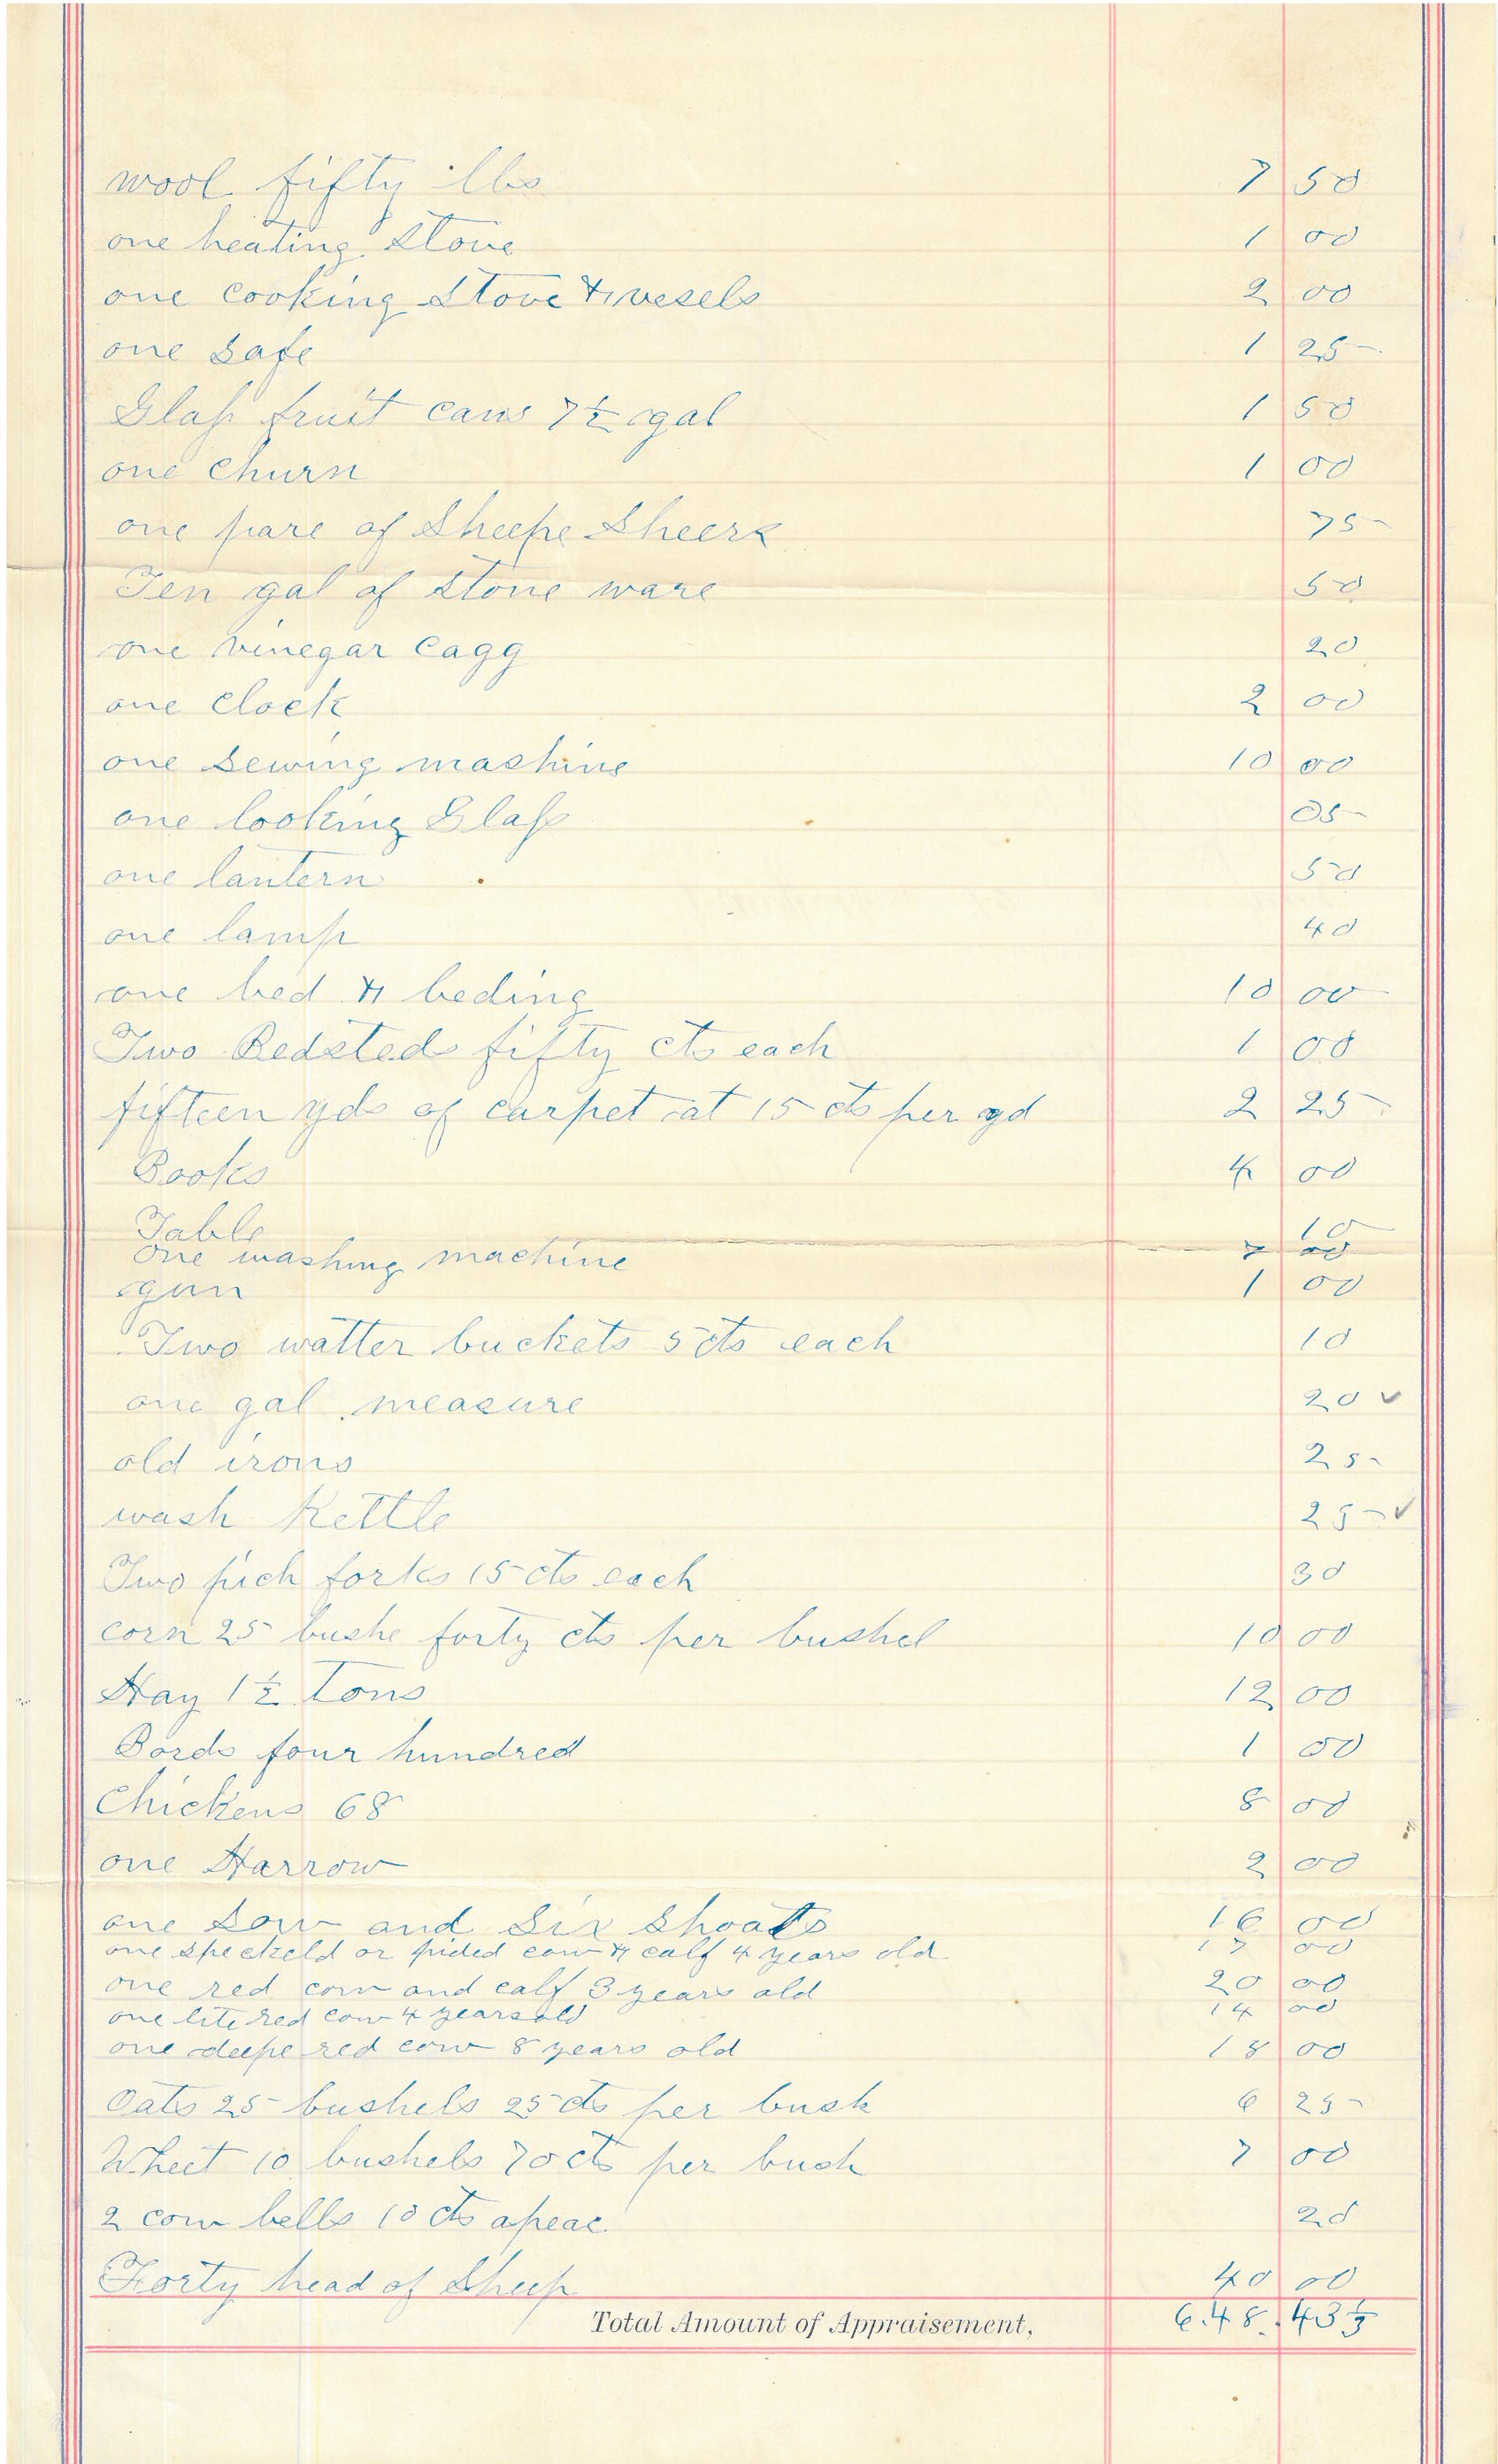 wool fifty lbs 7 50
one heating Stove 1 00
one cooking Stove & vesels 2 00
one Safe 1 25
Glass fruit cans 7½ gal 1 50
one Churn 1 00
one pare of Sheepe Sheers 75
Ten gal of Stone ware 50
one vinegar Cagg 20
one Clock 2 00
one Sewing mashine 10 00
one looking Glass 05
one lantern 50
one lamp 40
one bed & beding 10 00
Two Bedsted fifty cts each 1 00
fifteen yds of carpet at 15 cts per yd 2 25
Books 4 00
Table 10
one washing machine
gun 1 00
Two watter buckets 5 cts each 10
one gal measure 20 ✓
old irons 25
wash Kettle 25 ✓
Two pich forks 15 cts each 30
corn 25 bushe forty cts per bushel 10 00
Hay 1½ Tons 12 00
Bords four hundred 1 50
Chickens 68 8 00
one Harrow 2 00
one Sow and Six Shoats 16 00
one speckeld or pided cow & calf 4 years old 00
one red cow and calf 3 years old 20 00
one lite red cow 4 years old 14 00
one deepe red cow 8 years old 18 00
Oats 25 bushels 25 cts per bush 6 25
Wheet 10 bushels 70 cts per bush 7 00
2 cow bells 10 cts apeac 20
Forty head of Sheep 40 00
Total Amount of Appraisement, 648.43½